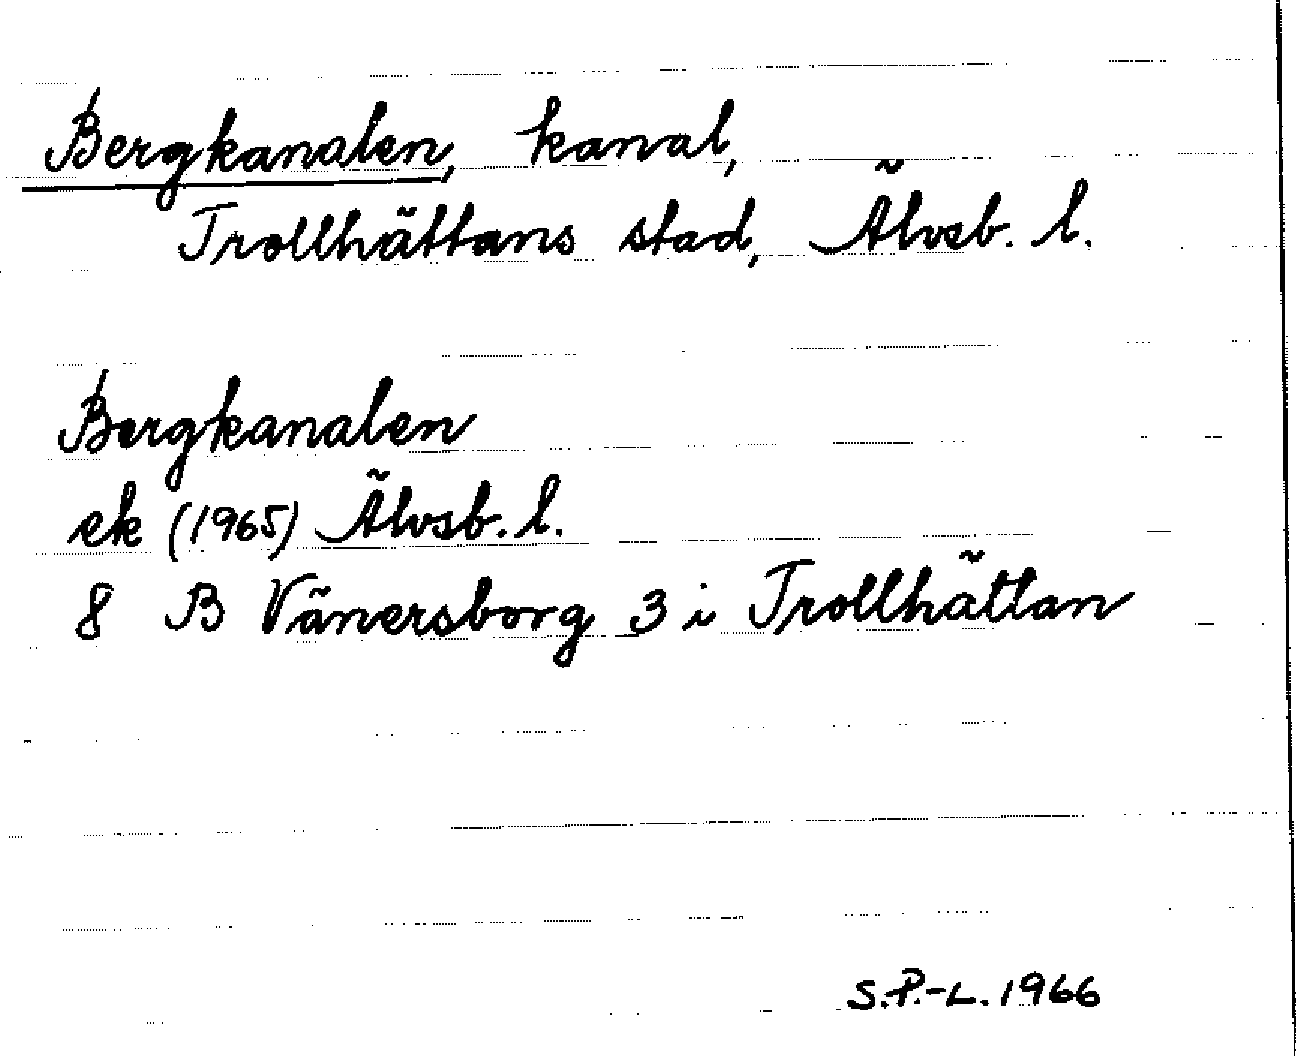 Bergkanalen, kanal,
Trollhättans stad, Älvsb. l.
Bergkanalen
ek (1965) Älvsb. l.
8 B Vänersborg 3 i Trollhättan
S.P.-L. 1966